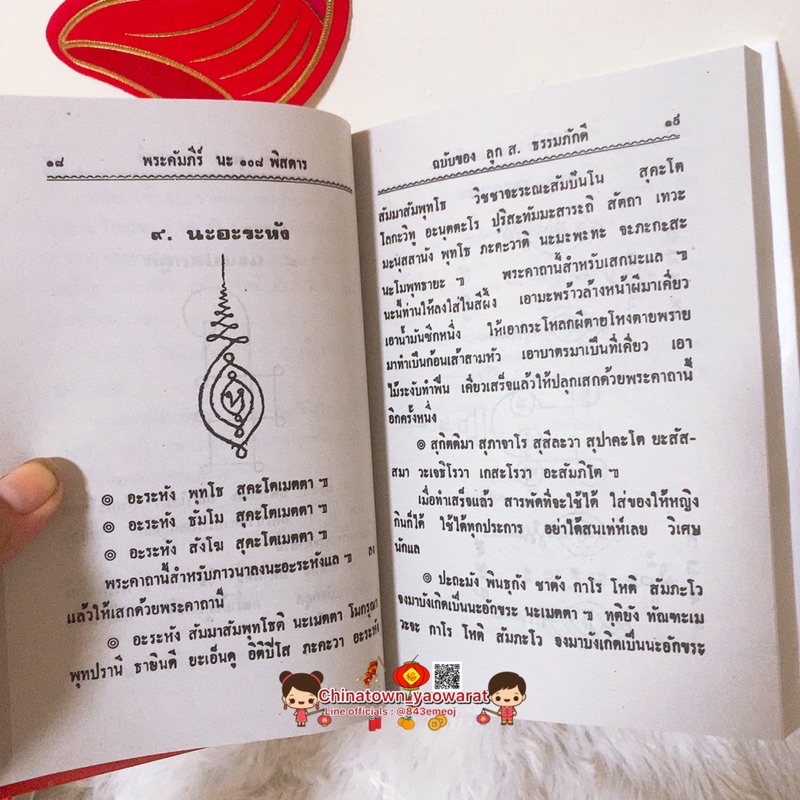 ๑๘ พระคัมภีร์ นะ ๑๐๘ พิสดาร
๙. นะอะระหัง
๏ อะระหัง พุทโธ สุคะโตเมตตา ๚
๏ อะระหัง ธัมโม สุคะโตเมตตา ๚
๏ อะระหัง สังโฆ สุคะโตเมตตา ๚
พระคาถานี้สำหรับภาวนาลงนะอะระหังแล ๚ ลง
แล้วให้เสกด้วยพระคาถานี้
๏ อะระหัง สัมมาสัมพุทโธติ นะเมตตา โมกรุณา
พุทปรานี ธายินดี ยะเอ็นดู อิติปิโส ภะคะวา อะระหัง
ฉบับของ ลุก ส. ธรรมภักดี ๑๙
สัมมาสัมพุทโธ วิชชาจะระณะสัมปันโน สุคะโต
โลกะวิทู อะนุตตะโร ปุริสะทัมมะสาระถิ สัตถา เทวะ
มะนุสสานัง พุทโธ ภะคะวาติ นะมะพะทะ จะภะกะสะ
นะโมพุทธายะ ๚ พระคาถานี้สำหรับเสกนะแล ๚
นะนี้ท่านให้ลงใส่ในสีผึ้ง เอามะพร้าวล้างหน้าผีมาเคี่ยว
เอาน้ำมันซีกหนึ่ง ให้เอากระโหลกผีตายโหงตายพราย
มาทำเป็นก้อนเส้าสามหัว เอาบาตรมาเป็นที่เคี่ยว เอา
ไม้ระงับทำฟืน เคี่ยวเสร็จแล้วให้ปลุกเสกด้วยพระคาถานี้
อีกครั้งหนึ่ง
๏ สุกิตติมา สุภาจาโร สุสีละวา สุปาคะโต ยะสัส-
สมา วะเจธิโรวา เกสะโรวา อะสัมภิโต ๚
เมื่อทำเสร็จแล้ว สารพัดที่จะใช้ได้ ใส่ของให้หญิง
กินก็ได้ ใช้ได้ทุกประการ อย่าได้สนเท่ห์เลย วิเศษ
นักแล
๏ ปะถะมัง พินธุกัง ชาตัง กาโร โหติ สัมภะโว
จงมาบังเกิดเป็นนะอักขระ นะเมตตา ๚ ทุติยัง ทัณฑะเม
วะจะ กาโร โหติ สัมภะโว จงมาบังเกิดเป็นนะอักขระ
Chinatown_yaowarat
Line officials : @843emeoj